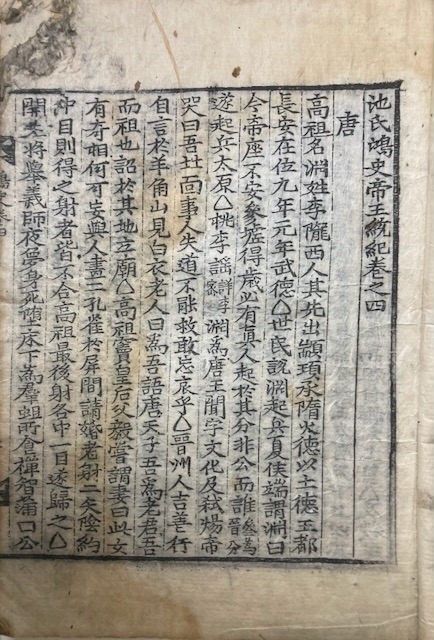 池氏鴻史帝王統紀卷之四
唐
高祖名淵姓李隴西人其先出顓頊承隋火德以土德王都
長安在位九年元年武德△世民說淵起兵夏侯端謂淵曰
今帝座不安參墟得歲必有真人起於其分非公而誰參爲晉分
遂起兵太原△桃李謠詳李密淵爲唐王聞宇文化及弑煬帝
哭曰吾北面事人失道不能救敢忘哀乎△晉州人吉善行
自言於羊角山見白衣老人曰爲吾語唐天子吾爲老君吾
而祖也詔於其地立廟△高祖竇皇后父毅嘗謂妻曰此女
有奇相何可妄與人畫二孔雀於屏間請婚者射二矢陰約
中目則得之射者皆不合高祖最後射各中一目遂歸之△
將擧義師夜夢身死墮床下爲羣蛆所食禪智滿曰公
鴻史卷四